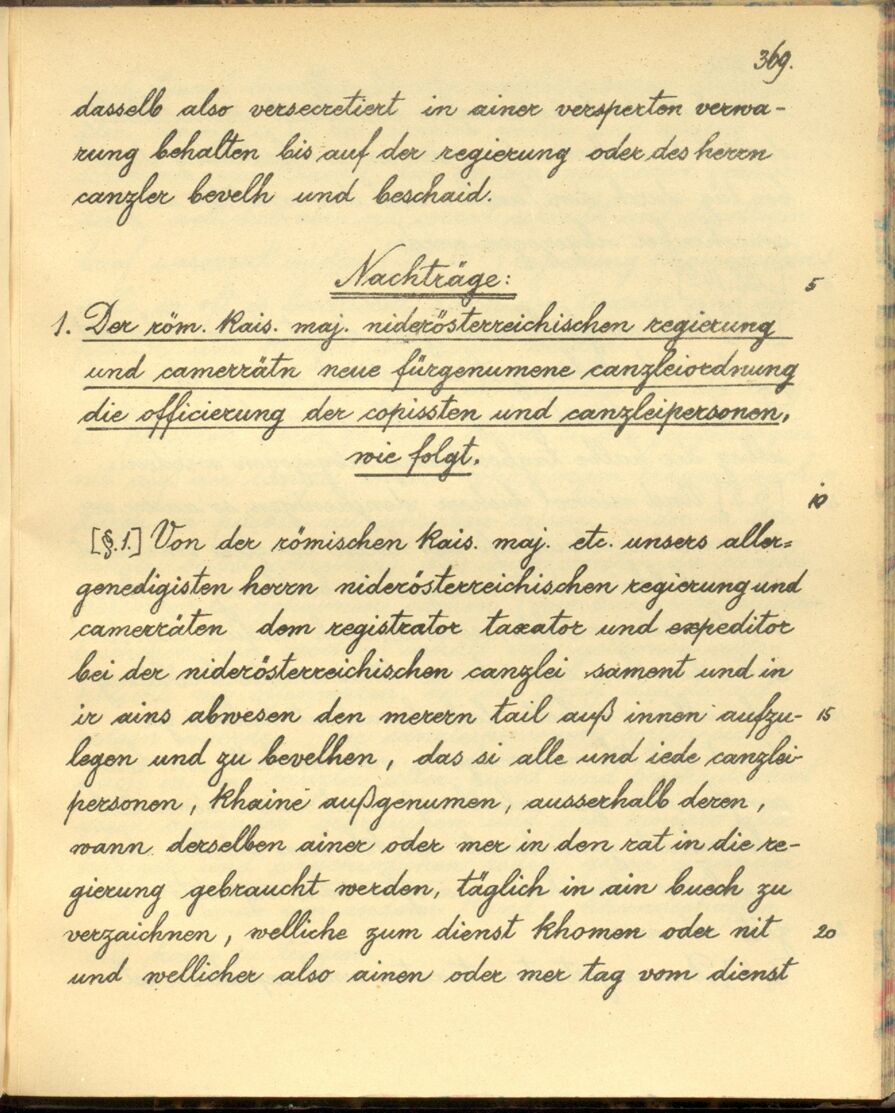 369.
dasselb also versecretiert in ainer versperten verwa-
rung behalten bis auf der regierung oder des herrn
canzler bevelh und beschaid.
Nachträge: 5
1. Der röm. kais. maj. niderösterreichischen regierung
und camerrätn neue fürgenumene canzleiordnung
die officierung der copissten und canzleipersonen,
wie folgt.
10
[§.1.] Von der römischen kais. maj. etc. unsers aller=
genedigisten herrn niderösterreichischen regierung und
camerräten dem registrator taxator und expeditor
bei der niderösterreichischen canzlei sament und in
ir ains abwesen den merern tail auß innen aufzu- 15
legen und zu bevelhen, das si alle und iede canzlei-
personen, khaine außgenumen, ausserhalb deren,
wann derselben ainer oder mer in den rat in die re-
gierung gebraucht werden, täglich in ain buech zu
verzaichnen, welliche zum dienst khomen oder nit 20
und wellicher also ainen oder mer tag vom dienst